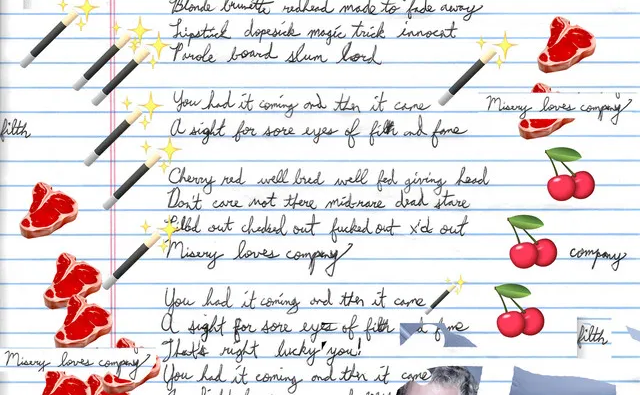 Blonde brunette redhead made to fade away
Lipstick dopesick magic trick innocent
Parole board slum lord
You had it coming and then it came
Misery loves company
A sight for sore eyes of filth and fame
filth
Cherry red well bred well fed giving head
Don't care not there mid-rare dead stare
out checked out fucked out x'd out
Misery loves company
company
You had it coming and then it came
A sight for sore eyes of filth fame
filth
That's right lucky you!
Misery loves company
You had it coming and then it came